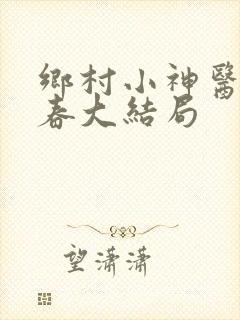 鄉村小神醫
春大結局
望瀟瀟